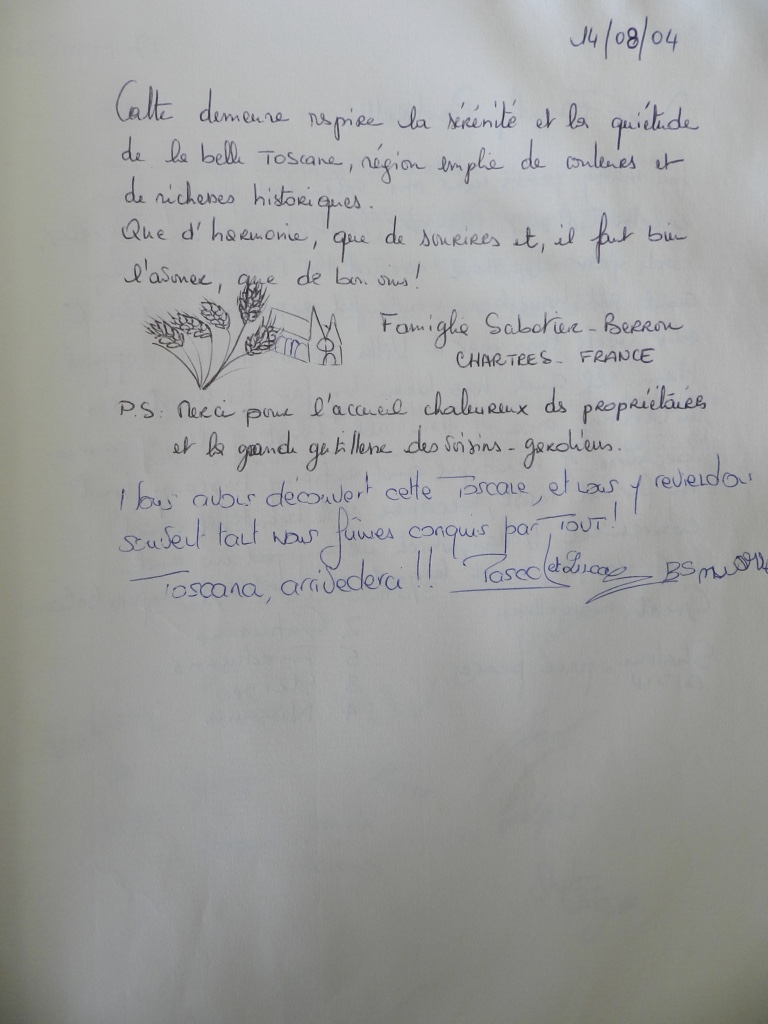 14/08/04
Cette demeure respire la sérénité et la quiétude
de la belle Toscane, région emplie de couleurs et
de richesses historiques.
Que d'harmonie, que de sourires et, il faut bien
l'avouer, que de bons vins!
Famiglia Sabatier - Berrou
CHARTRES - FRANCE
P.S: Merci pour l'accueil chaleureux des propriétaires
et la grande gentillesse des voisins - gardiens.
Nous avons découvert cette Toscane, et nous y reviendrons
souvent tant nous fûmes conquis par TOUT!
Toscana, arrivederci!! Pascal et